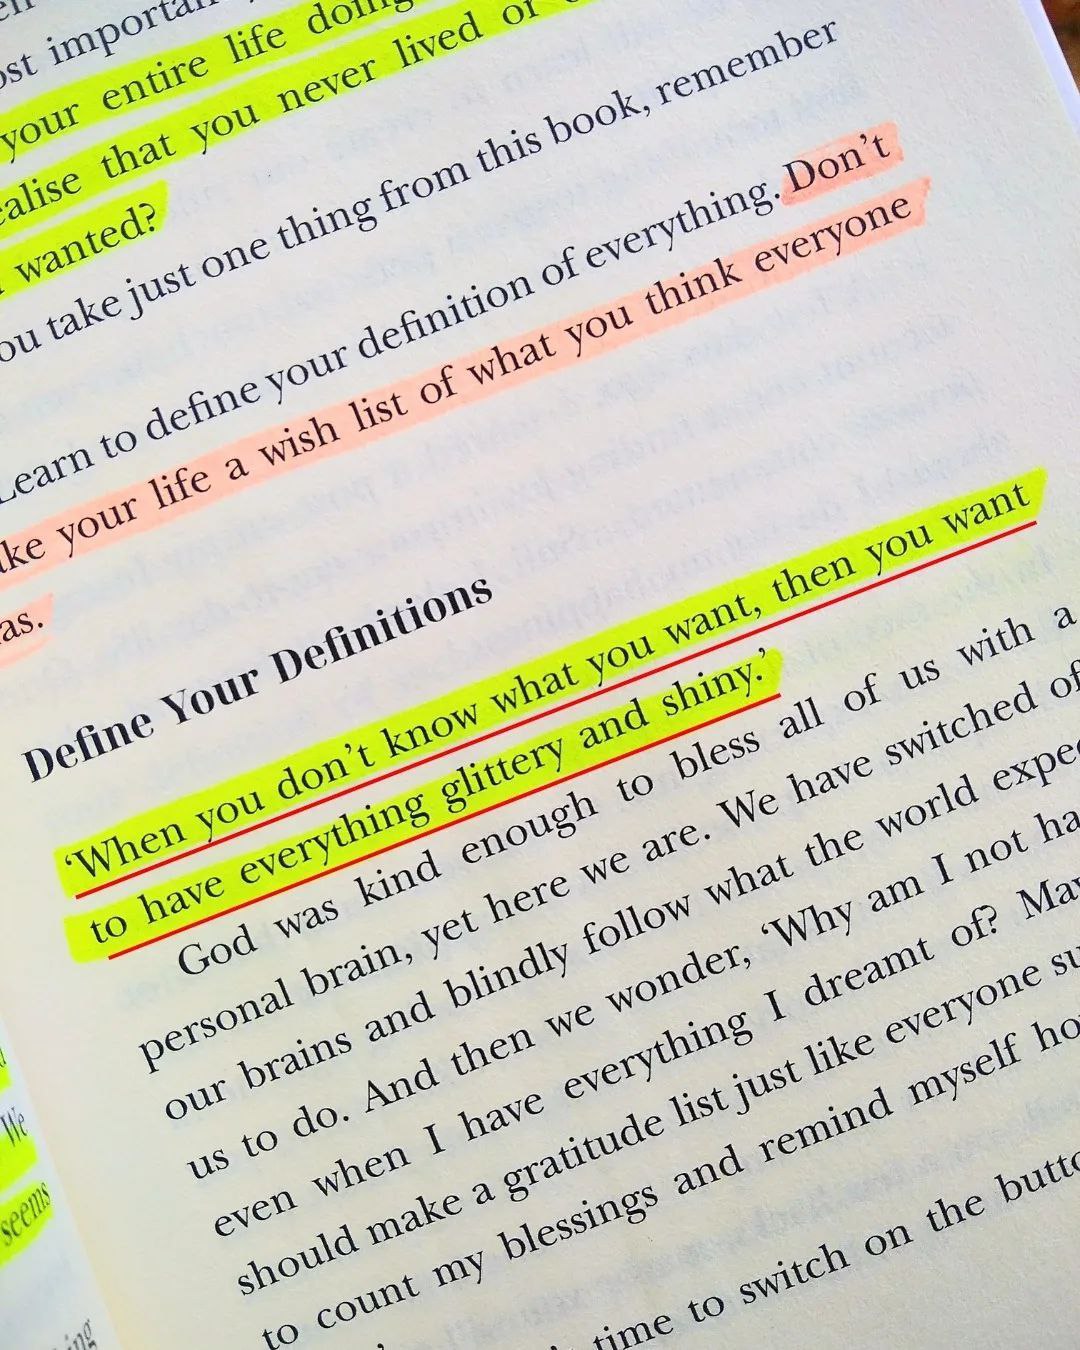 your entire life doing
that you never lived or
wanted?
take just one thing from this book, remember
Learn to define your definition of everything. Don't
your life a wish list of what you think everyone
Define Your Definitions
'When you don't know what you want, then you want
to have everything glittery and shiny.'
God was kind enough to bless all of us with a
personal brain, yet here we are. We have switched
our brains and blindly follow what the world
us to do. And then we wonder, 'Why am I not
even when I have everything I dreamt of?
should make a gratitude list just like everyone
to count my blessings and remind myself
time to switch on the
We
seems